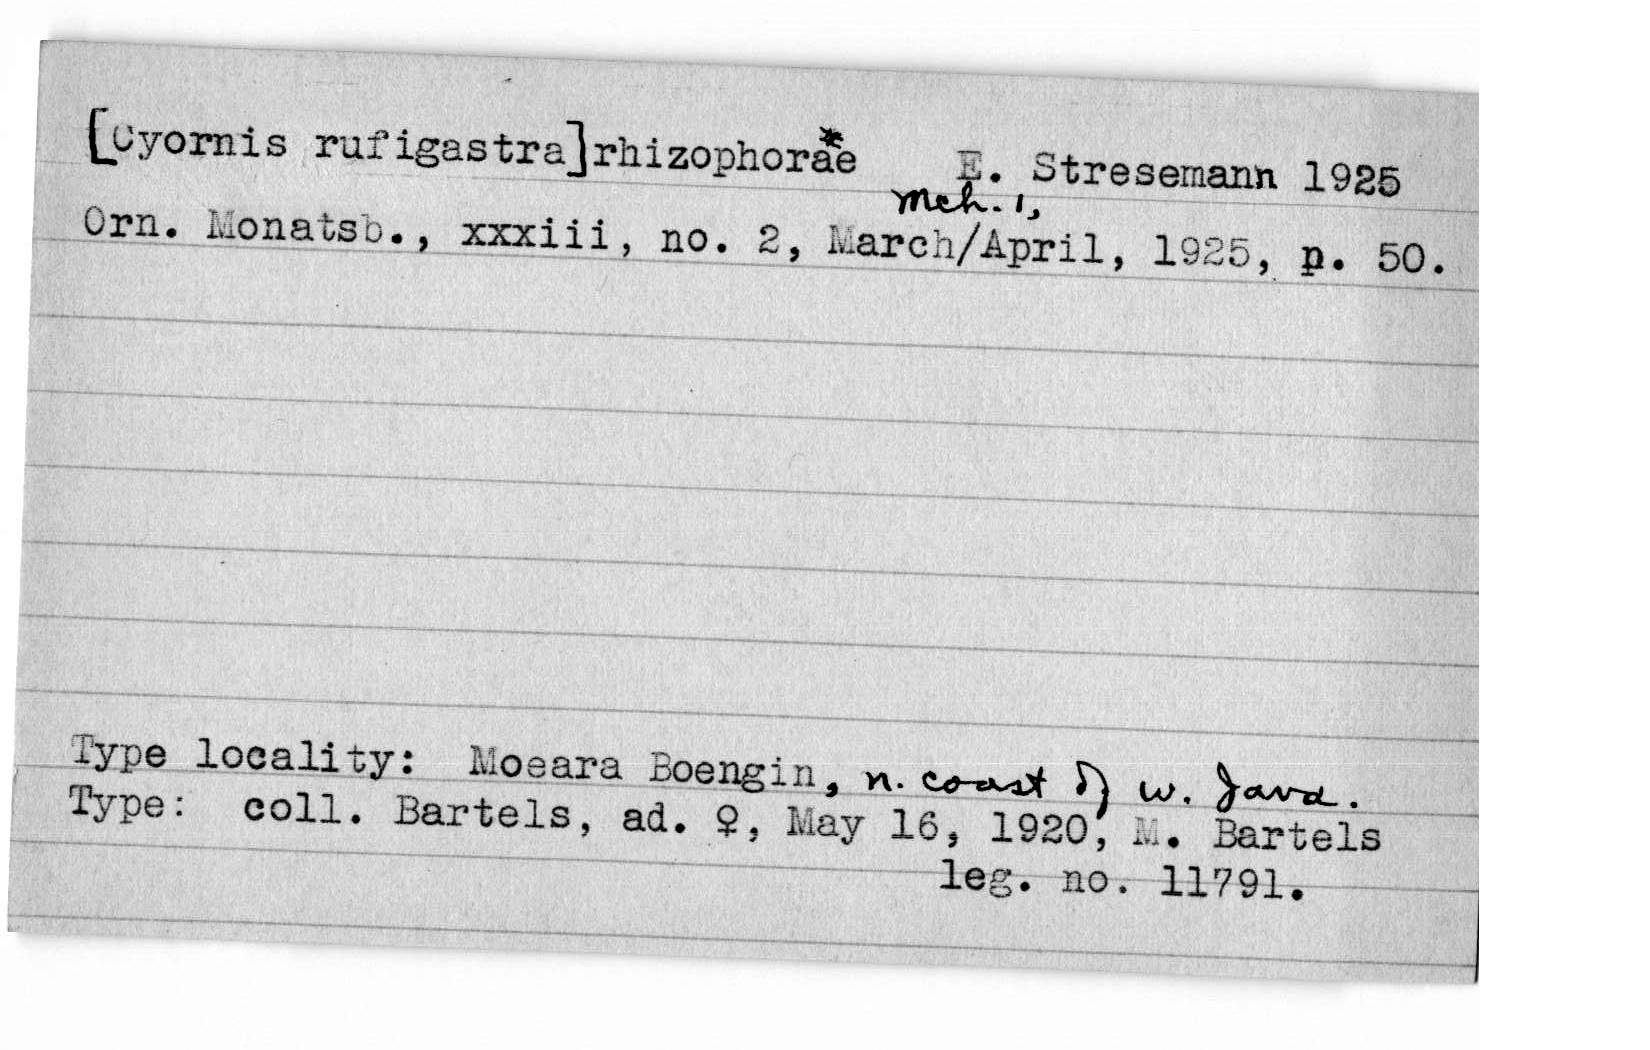 [Cyornis rufigastra] rhizophorae* E. Stresemann 1925
Mch. 1,
Orn. Monatsb., xxxiii, no. 2, March/April, 1925, p. 50.
Type locality: Moeara Boengin, n. coast of w. Java.
Type: coll. Bartels, ad. ♀, May 16, 1920, M. Bartels
leg. no. 11791.